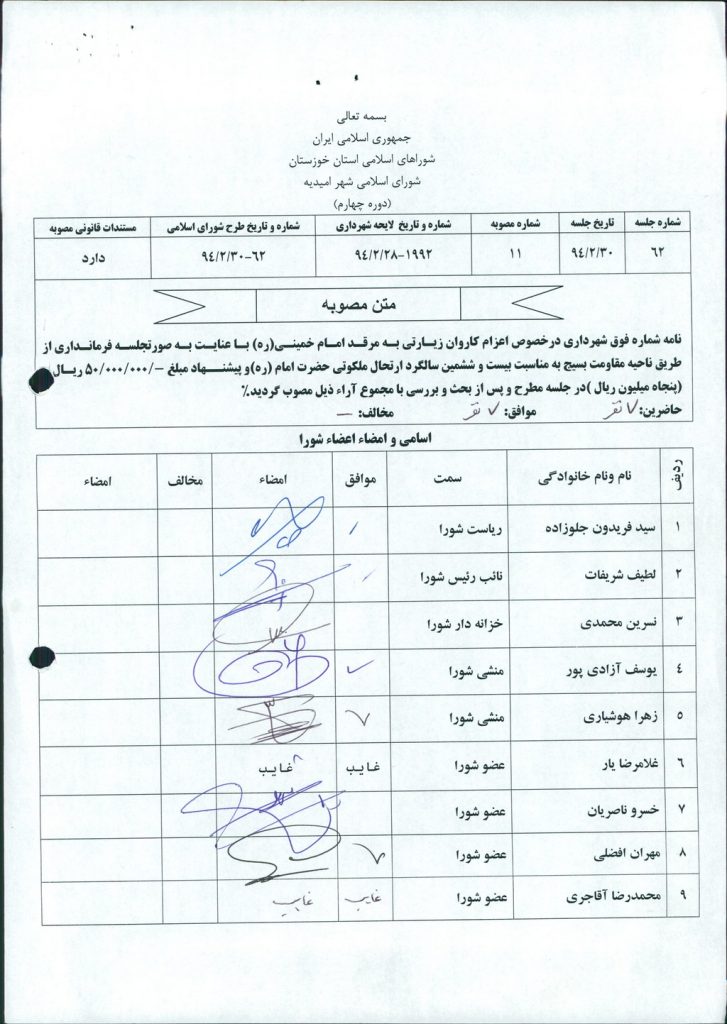 بسمه تعالی
جمهوری اسلامی ایران
شوراهای اسلامی استان خوزستان
شورای اسلامی شهر امیدیه
(دوره چهارم)
شماره جلسه	تاریخ جلسه	شماره مصوبه	شماره و تاریخ لایحه شهرداری	شماره و تاریخ طرح شورای اسلامی	مستندات قانونی مصوبه
۶۲	۹٤/۲/۳۰	۱۱	۹٤/۲/۲۸-۱۹۹۲	۹٤/۲/۳۰-۶۲	دارد
متن مصوبه
نامه شماره فوق شهرداری درخصوص اعزام کاروان زیارتی به مرقد امام خمینی(ره) با عنایت به صورتجلسه فرمانداری از
طریق ناحیه مقاومت بسیج به مناسبت بیست و ششمین سالگرد ارتحال ملکوتی حضرت امام (ره)و پیشنهاد مبلغ -/۵۰/۰۰۰/۰۰۰ ریال
(پنجاه میلیون ریال )در جلسه مطرح و پس از بحث و بررسی با مجموع آراء ذیل مصوب گردید.٪
حاضرین: ۷ نفر	موافق: ۷ نفر	مخالف: —
اسامی و امضاء اعضاء شورا
ردیف	نام ونام خانوادگی	سمت	موافق	امضاء	مخالف	امضاء
۱	سید فریدون جلوزاده	ریاست شورا
۲	لطیف شریفات	نائب رئیس شورا
۳	نسرین محمدی	خزانه دار شورا
٤	یوسف آزادی پور	منشی شورا
۵	زهرا هوشیاری	منشی شورا
۶	غلامرضا یار	عضو شورا	غایب	غایب
۷	خسرو ناصریان	عضو شورا
۸	مهران افضلی	عضو شورا
۹	محمدرضا آقاجری	عضو شورا	غایب	غایب